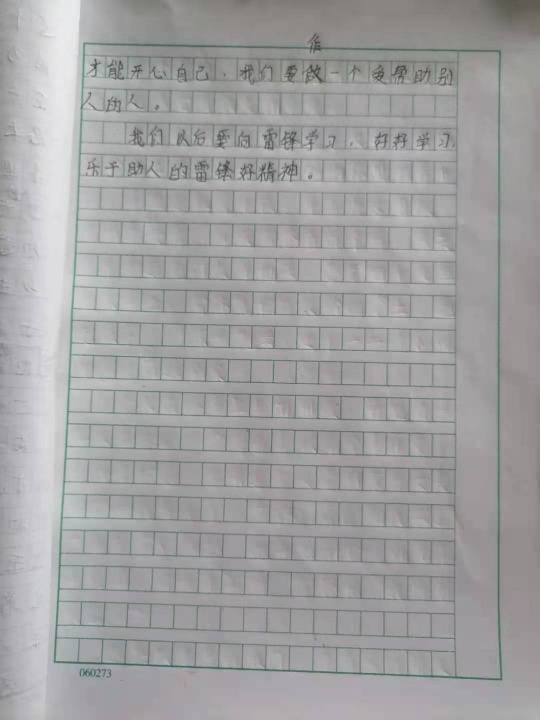 才能开心自己，我们要做一个爱帮助别
人的人。
我们以后要向雷锋学习，好好学习
乐于助人的雷锋好精神。
060273